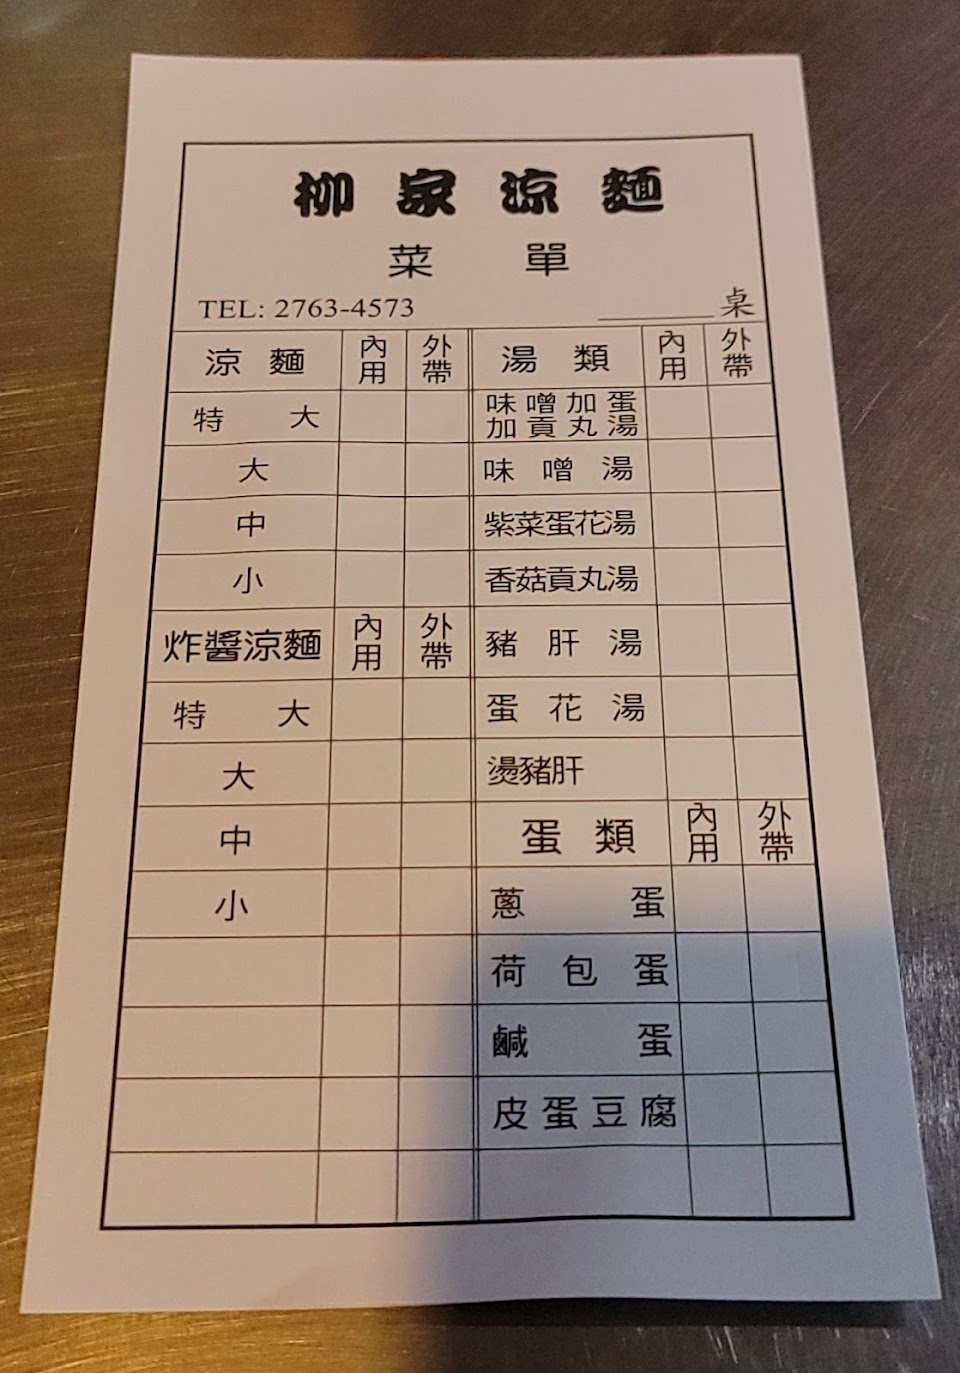 柳家涼麵
菜單
TEL: 2763-4573 ______桌
涼麵 內用 外帶 湯類 內用 外帶
特大 味噌加蛋加貢丸湯
大 味噌湯
中 紫菜蛋花湯
小 香菇貢丸湯
炸醬涼麵 內用 外帶 豬肝湯
特大 蛋花湯
大 燙豬肝
中 蛋類 內用 外帶
小 蔥蛋
荷包蛋
鹹蛋
皮蛋豆腐